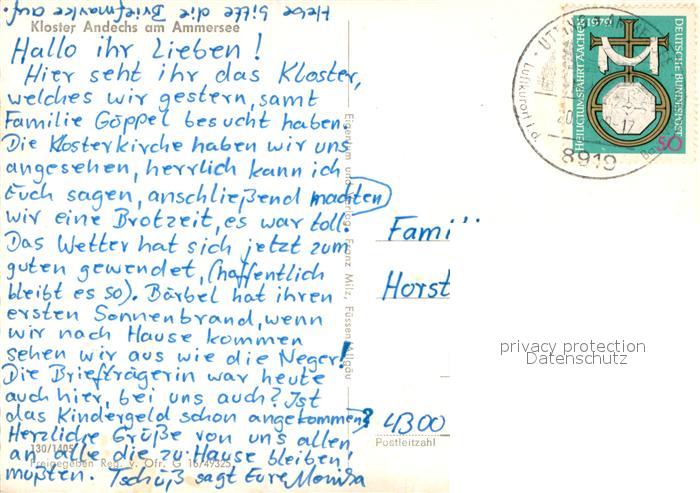 Hebe bitte die Briefmarke auf.
Kloster Andechs am Ammersee
Hallo ihr Lieben!
Hier seht ihr das Kloster,
welches wir gestern, samt
Familie Göppel besucht haben.
Die Klosterkirche haben wir uns
angesehen, herrlich kann ich
Euch sagen, anschließend machten
wir eine Brotzeit, es war toll.
Das Wetter hat sich jetzt zum
guten gewendet, (hoffentlich
bleibt es so). Bärbel hat ihren
ersten Sonnenbrand, wenn
wir nach Hause kommen
sehen wir aus wie die Neger!
Die Briefträgerin war heute
auch hier, bei uns auch? Ist
das Kindergeld schon angekommen?
Herzliche Grüße von uns allen
an alle die zu Hause bleiben
mußten. Tschüß sagt Eure Monika
130/1405
Freigegeben Reg. v. Ofr. G 16/49325
Eigentum und Verlag Franz Milz, Füssen/Allgäu
HEILIGTUMSFAHRT AACHEN 1979
DEUTSCHE BUNDESPOST
50
Luftkurort i.d.
8919
Fami
Horst
4300
Postleitzahl
privacy protection
Datenschutz